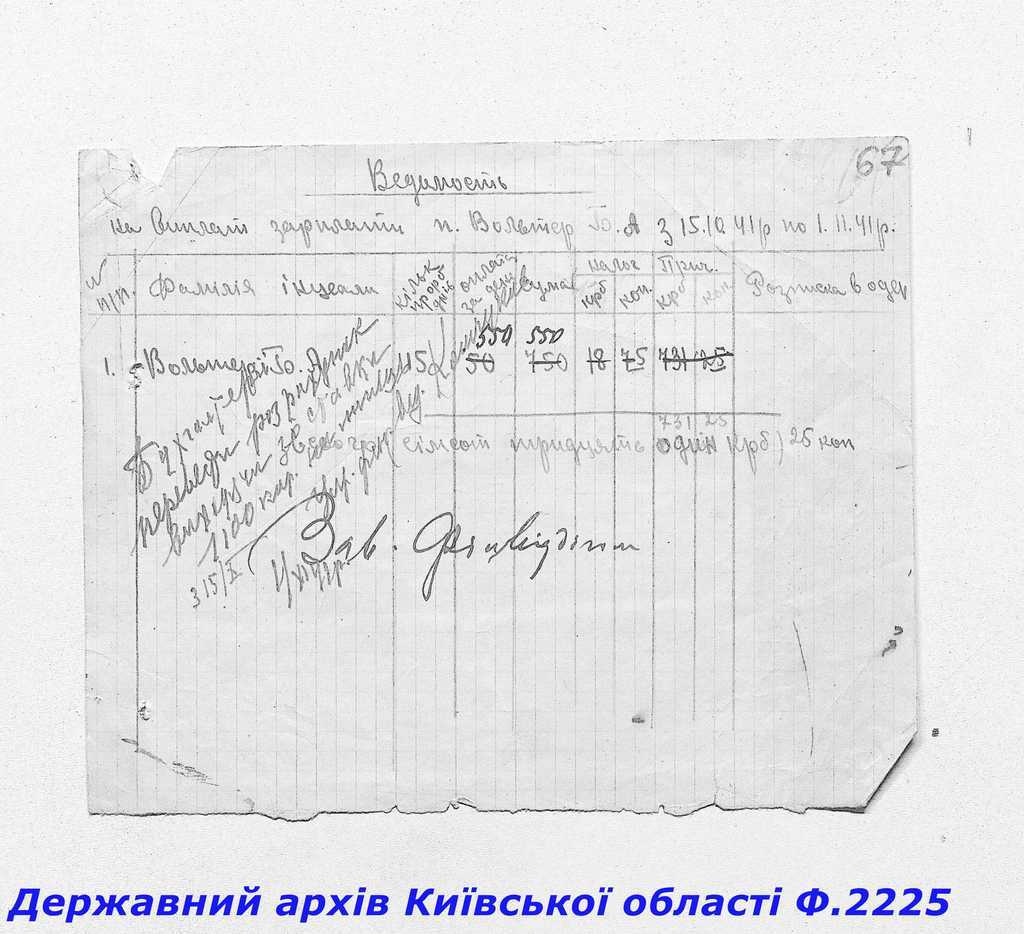 67
Ведимость
на виплат зарплати п. Вольтер Б. А з 15.10 41р по 1. 11. 41р.
N п/п. Фамілія ініціали кільк прорб днів оплата за день сума налог крб коп. Прич. крб коп Розписка в одер
550 550
1. Вольтер Б. 15 50 750 18 75 731 25
731 25
(сімсот тридцять один крб) 25 коп
Бухгалтерії
переведи розрахунок
виходячи з ставки
1100 кар.
Зав.
з 15/X
Державний архів Київської області Ф.2225